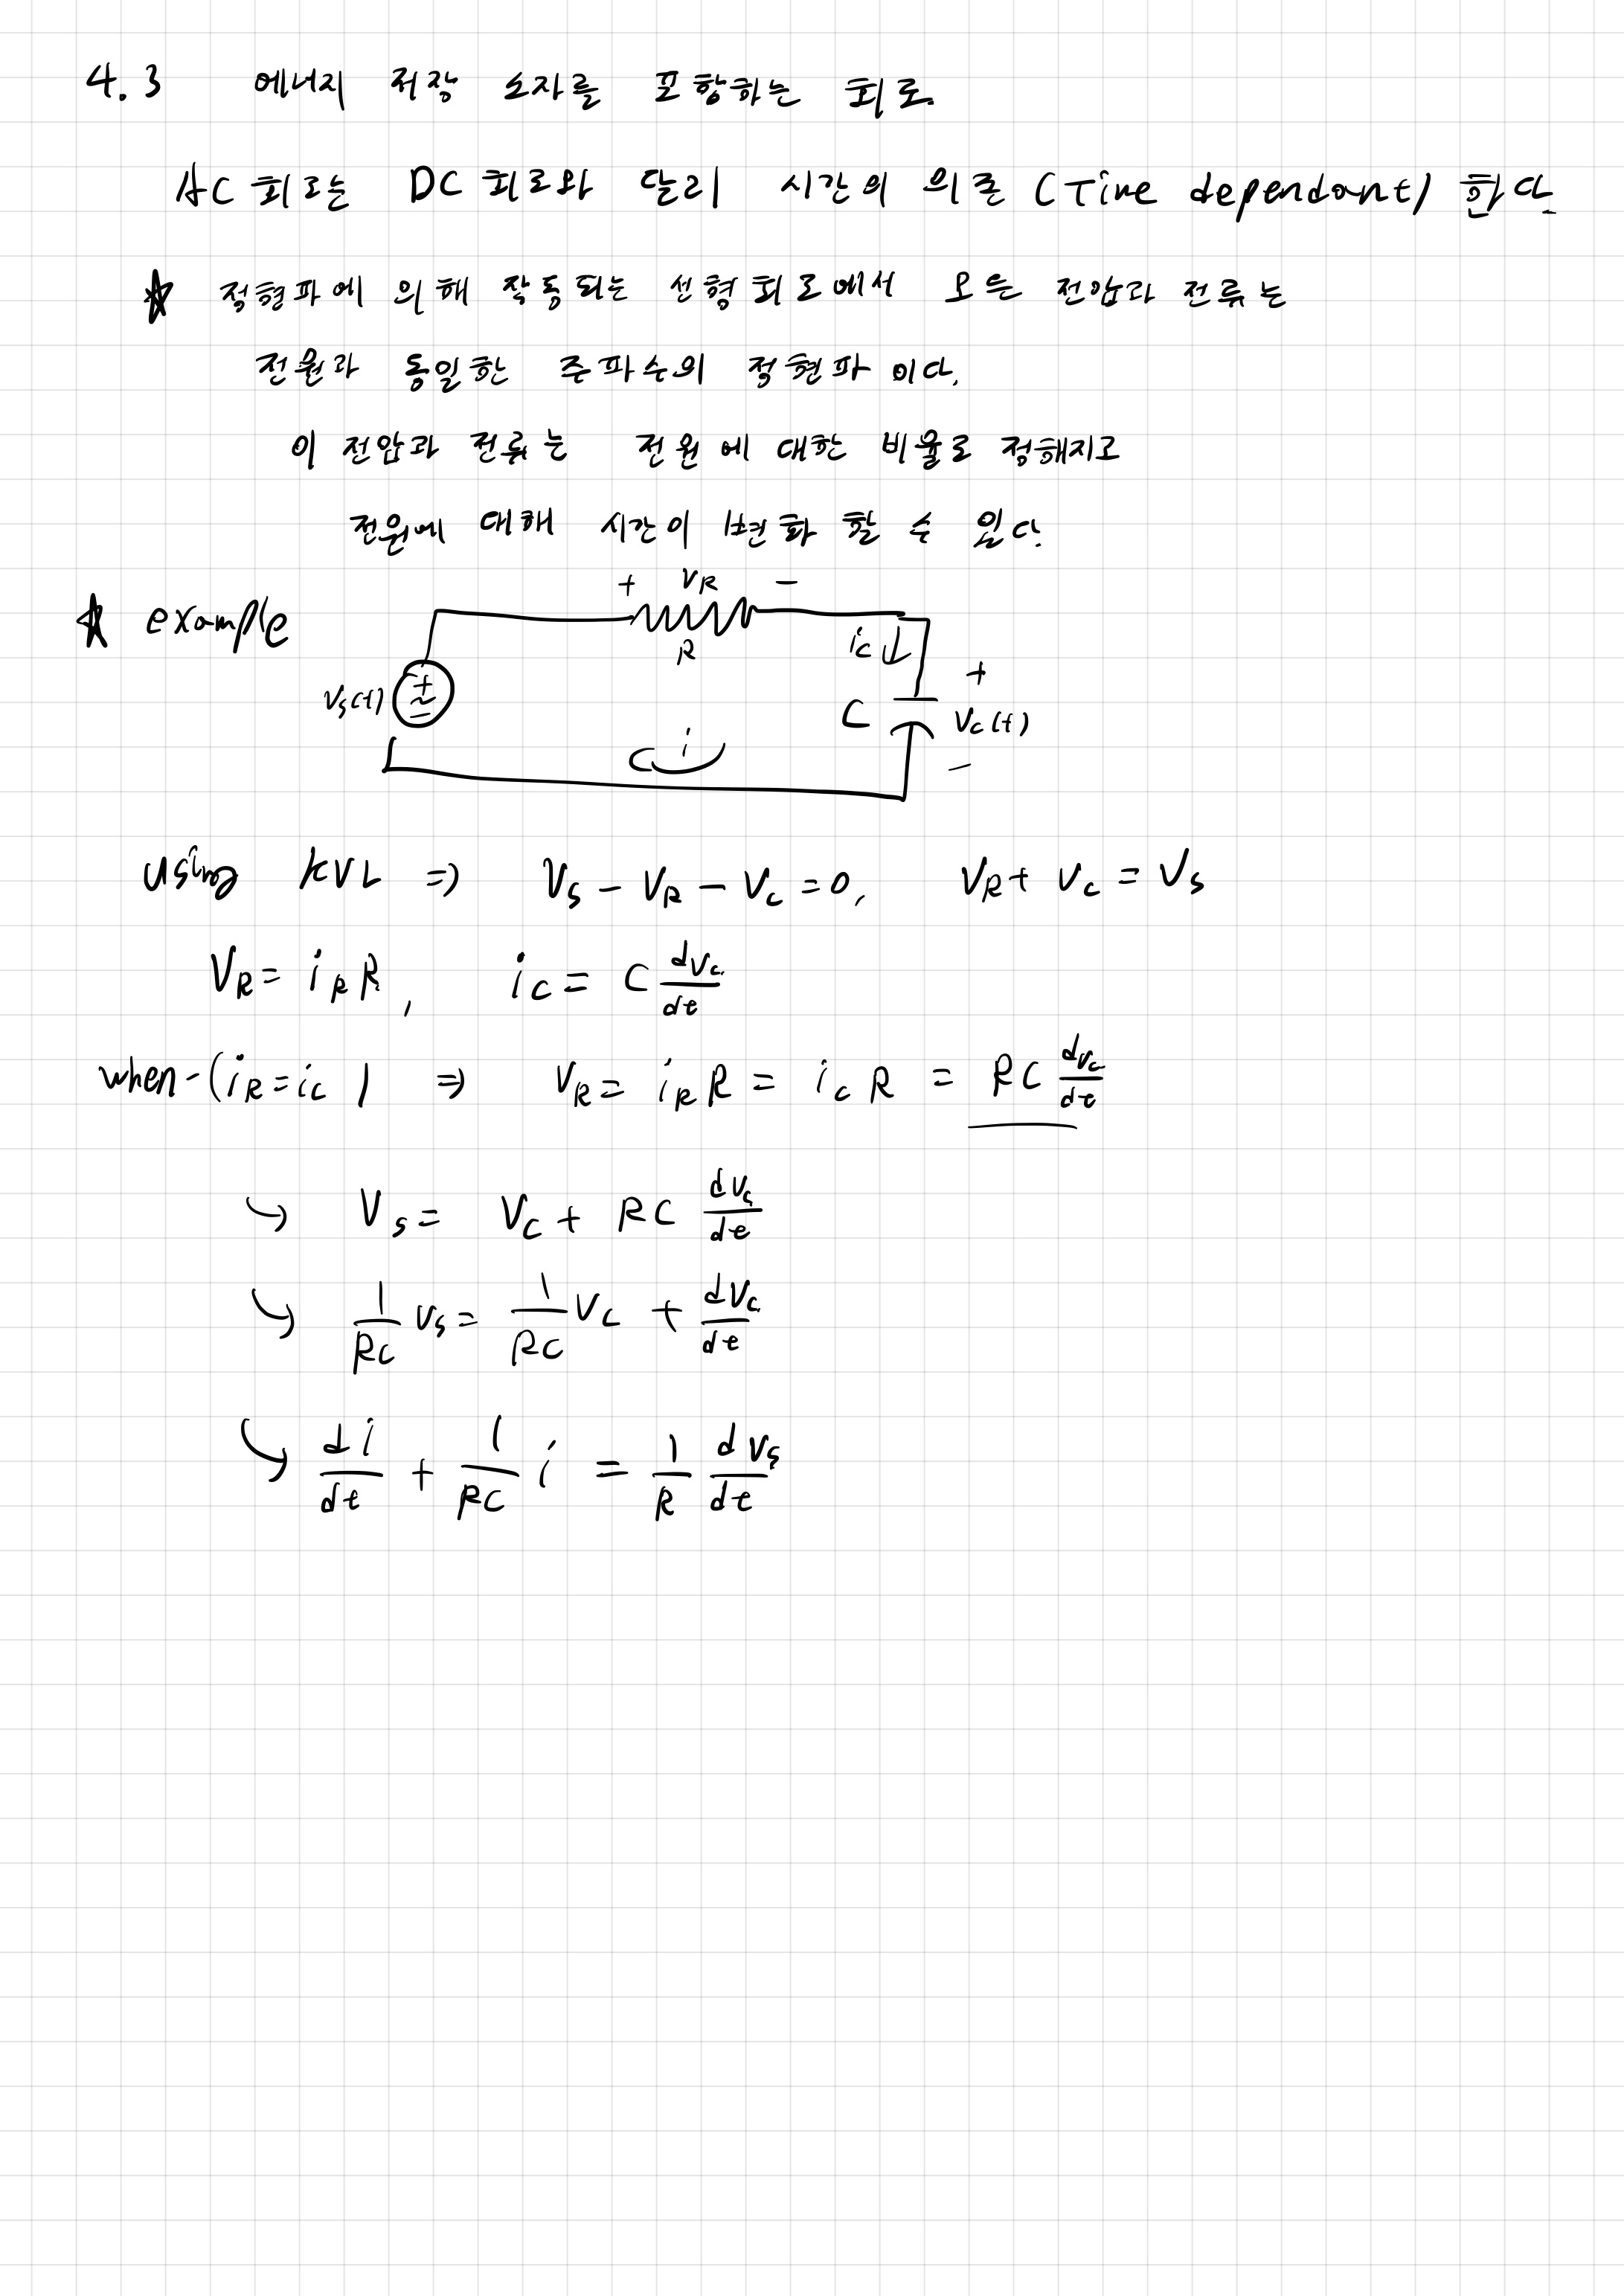 4.3 에너지 저장 소자를 포함하는 회로
AC 회로는 DC 회로와 달리 시간의 의존 (Time dependant) 한다
★ 정형파에 의해 작동되는 선형회로에서 모든 전압과 전류는
전원과 동일한 주파수의 정현파 이다.
이 전압과 전류는 전원에 대한 비율로 정해지고
전원에 대해 시간이 변화 할 수 있다.
+ VR −
★ example
R
ic
+
Vs(t)
+
~
−
C
Vc(t)
i
−
using KVL ⇒ Vs − VR − Vc = 0, VR + Vc = Vs
VR = iR R, ic = C dVc/dt
when (iR = ic) ⇒ VR = iR R = ic R = RC dVc/dt
↳ Vs = Vc + RC dVc/dt
↳ 1/RC Vs = 1/RC Vc + dVc/dt
↳ di/dt + 1/RC i = 1/R dVs/dt